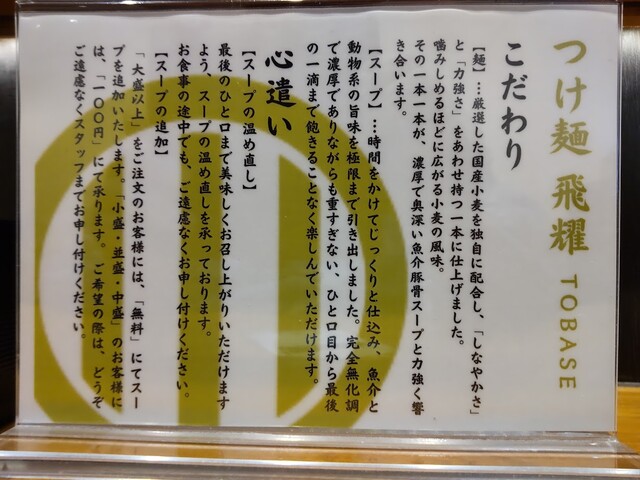 つけ麺 飛耀 TOBASE
こだわり
【麺】…厳選した国産小麦を独自に配合し、「しなやかさ」
と「力強さ」をあわせ持つ一本に仕上げました。
噛みしめるほどに広がる小麦の風味。
その一本一本が、濃厚で奥深い魚介豚骨スープと力強く響
き合います。
【スープ】…時間をかけてじっくりと仕込み、魚介と
動物系の旨味を極限まで引き出しました。完全無化調
で濃厚でありながらも重すぎない、ひと口目から最後
の一滴まで飽きることなく楽しんでいただけます。
心遣い
【スープの温め直し】
最後のひと口まで美味しくお召し上がりいただけます
よう、スープの温め直しを承っております。
お食事の途中でも、ご遠慮なくお申し付けください。
【スープの追加】
「大盛以上」をご注文のお客様には、「無料」にてスー
プを追加いたします。「小盛・並盛・中盛」のお客様に
は、「一〇〇円」にて承ります。ご希望の際は、どうぞ
ご遠慮なくスタッフまでお申し付けください。